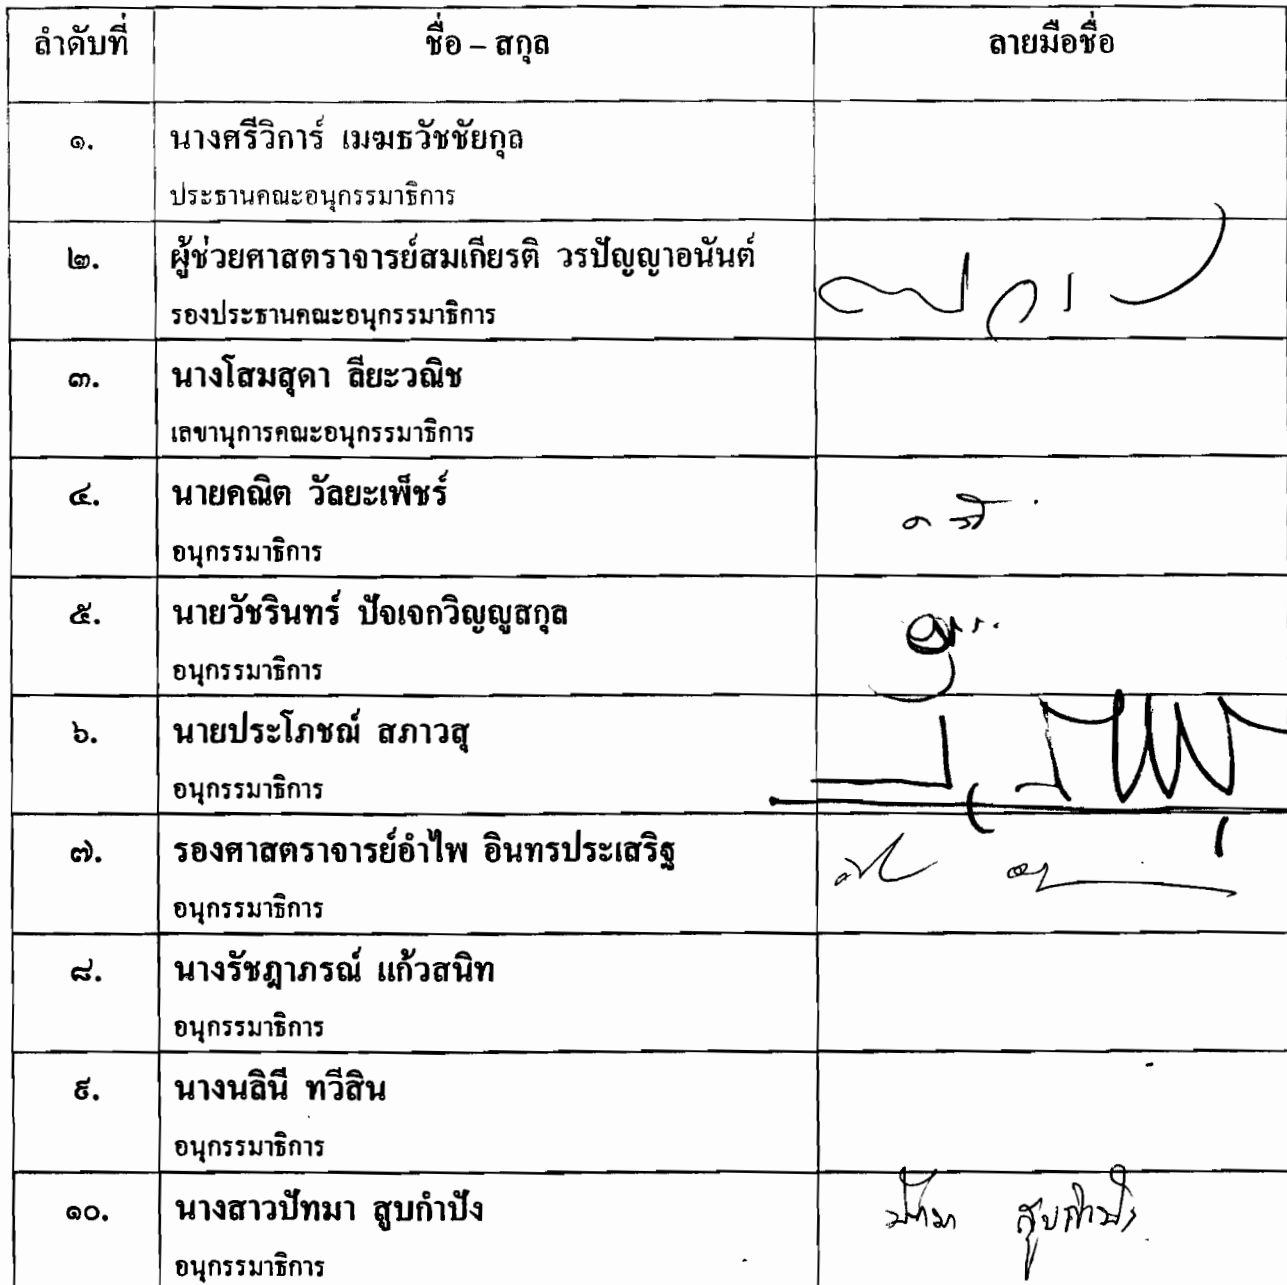 ลำดับที่ ชื่อ – สกุล ลายมือชื่อ
๑. นางศรีวิการ์ เมฆธวัชชัยกุล
ประธานคณะอนุกรรมาธิการ
๒. ผู้ช่วยศาสตราจารย์สมเกียรติ วรปัญญาอนันต์
รองประธานคณะอนุกรรมาธิการ
๓. นางโสมสุดา ลียะวณิช
เลขานุการคณะอนุกรรมาธิการ
๔. นายคณิต วัลยะเพ็ชร์
อนุกรรมาธิการ
๕. นายวัชรินทร์ ปัจเจกวิญญูสกุล
อนุกรรมาธิการ
๖. นายประโภชณ์ สภาวสุ
อนุกรรมาธิการ
๗. รองศาสตราจารย์อำไพ อินทรประเสริฐ
อนุกรรมาธิการ
๘. นางรัชฎาภรณ์ แก้วสนิท
อนุกรรมาธิการ
๙. นางนลินี ทวีสิน
อนุกรรมาธิการ
๑๐. นางสาวปัทมา สูบกำปัง ปัทมา สูบกำปัง
อนุกรรมาธิการ